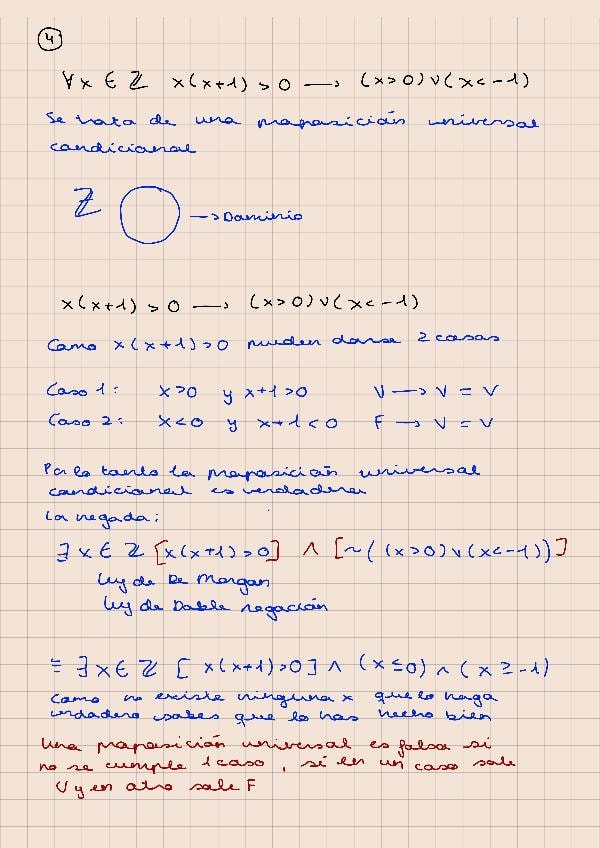 4
∀x ∈ ℤ x(x+1) > 0 → (x>0) ∨ (x<-1)
Se trata de una proposición universal
condicional
ℤ → Dominio
x(x+1) > 0 → (x>0) ∨ (x<-1)
Como x(x+1)>0 pueden darse 2 casos
Caso 1: x>0 y x+1>0 V → V = V
Caso 2: x<0 y x+1<0 F → V = V
Por lo tanto la proposición universal
condicional es verdadera
La negada:
∃x ∈ ℤ [x(x+1)>0] ∧ [~((x>0)∨(x<-1))]
Ley de De Morgan
Ley de Doble negación
≡ ∃x ∈ ℤ [x(x+1)>0] ∧ (x≤0) ∧ (x≥-1)
Como no existe ninguna x que lo haga
verdadero sabes que lo has hecho bien
Una proposición universal es falsa si
no se cumple 1 caso, si en un caso sale
V y en otro sale F